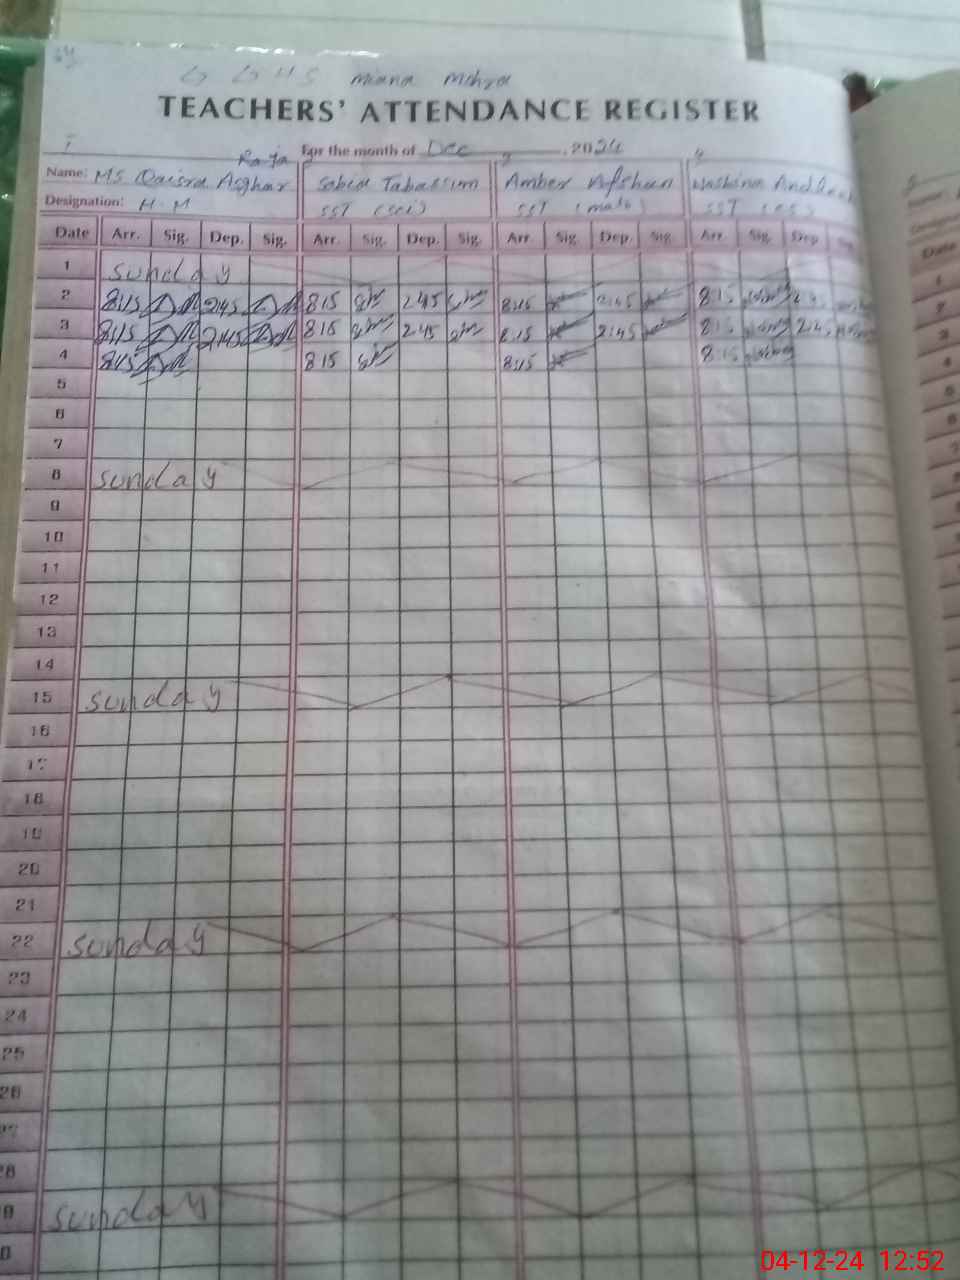 GGHS Miana Mohra
TEACHERS' ATTENDANCE REGISTER
For the month of Dec , 2024
Name: MS Qaisra Asghar Raja Sabia Tabassum Amber Afshan
Designation: H.M SST (sci) SST (math) SST
Date Arr. Sig. Dep. Sig. Arr. Sig. Dep. Sig. Arr. Sig. Dep. Sig. Arr. Sig. Dep. Sig.
1 Sunday
2 8:15 2:45 8 15 2 45 8:15 2:45 8 15 2:45
3 8:15 2:45 8 15 2 45 8:15 2:45 8 15 2:45
4 8:15 8 15 8:15 8 15
5
6
7
8 Sunday
9
10
11
12
13
14
15 Sunday
16
17
18
19
20
21
22 Sunday
23
24
25
26
Sunday
04-12-24 12:52